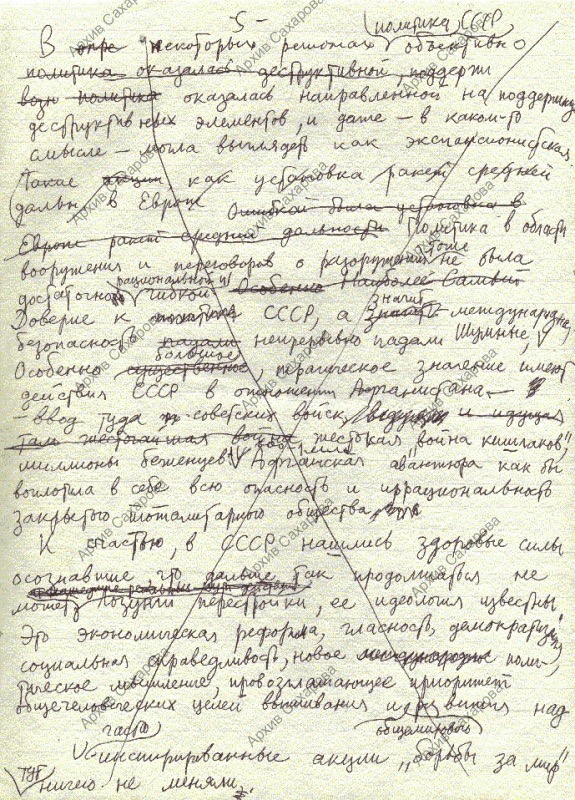 - 5 -
политика СССР
В опре некоторых регионах объективно
политика оказалась деструктивной, поддерж
вою политика оказалась направленной на поддержку
деструктивных элементов, и даже – в каком-то
смысле – могла выглядеть как экспансионистская.
Такие акции как установка ракет средней
дальн. в Европе Ошибкой была установка в
Европе ракет средней дальности Политика в области
вооружения и переговоров о разоружении тоже не была
достаточно рациональной и гибкой Особенно Наиболее Самый
Доверие к политике СССР, а значит международная
безопасность падали непрерывно падали
Особенно существенное большое, трагическое значение имеют
действия СССР в отношении Афганистана –
– ввод туда советских войск, и идущая
там жесточайшая война жестокая "война кишлаков",
миллионы беженцев. Афганская авантюра как бы
воплотила в себе всю опасность и иррациональность
закрытого тоталитарного общества
К счастью, в СССР нашлись здоровые силы
осознавшие что дальше так продолжаться не
может Лозунги перестройки, ее идеология известны
Это экономическая реформа, гласность, демократизация
социальная справедливость, новое международное поли-
тическое мышление, провозглашающее приоритет
общечеловеческих целей выживания и развития над
часто общемирового
инспирированные акции "борьбы за мир"
тут ничего не меняли.
Архив Сахарова